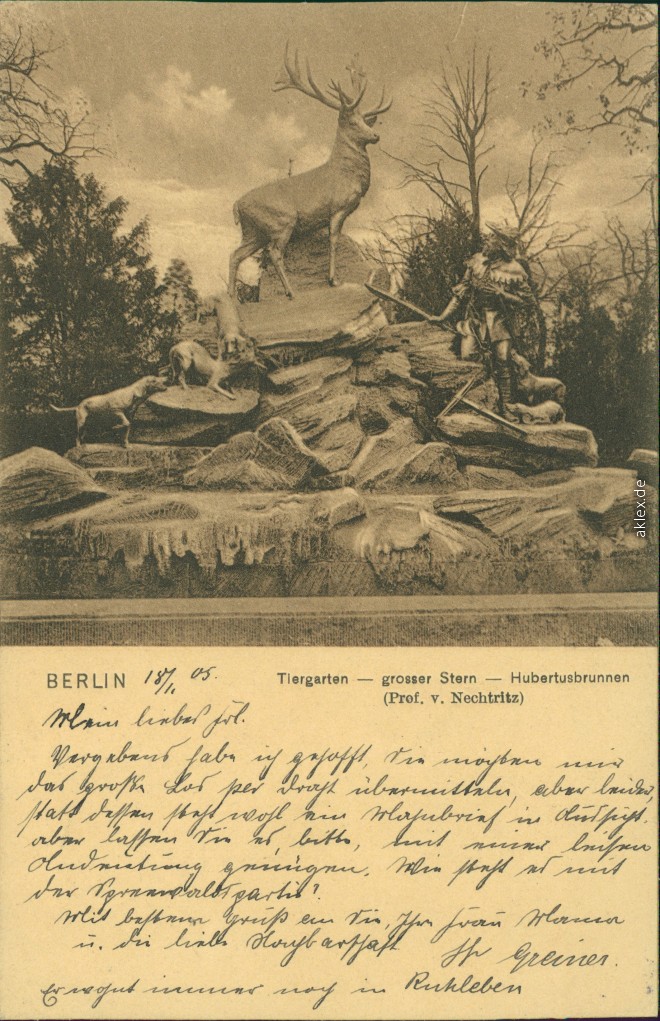 aklex.de
BERLIN 18/1. 05.
Tiergarten — grosser Stern — Hubertusbrunnen
(Prof. v. Nechtritz)
Mein liebes Frl.
Vergebens habe ich gehofft, Sie möchten mir
das große Los per Draht übermitteln, aber leider,
statt dessen steht wohl ein Mahnbrief in Aussicht.
aber lassen Sie es, bitte, mit einer leisen
Andeutung genügen. Wie steht es mit
der Spreewaldpartie?
Mit bestem Gruß an Sie, Ihre Frau Mama
u. die liebe Nachbarschaft
Ihr Greiner.
Er wohnt immer noch in Ruhleben